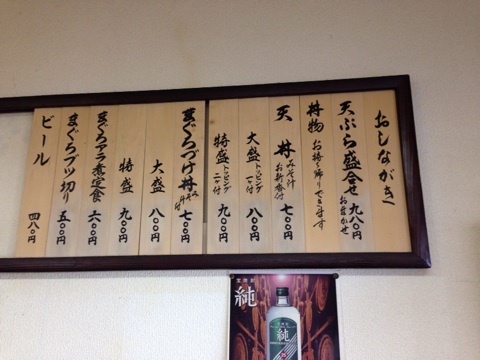 おしながき
天ぷら盛合せ 九八〇円 おまかせ
丼物 お持ち帰りできます
天丼 みそ汁 お新香付 七〇〇円
大盛 トッピング一ヶ付 八〇〇円
特盛 トッピング二ヶ付 九〇〇円
まぐろづけ丼 みそ汁付 七〇〇円
大盛 八〇〇円
特盛 九〇〇円
まぐろアラ煮定食 六〇〇円
まぐろブツ切り 五〇〇円
ビール 四八〇円
宝焼酎
純
純